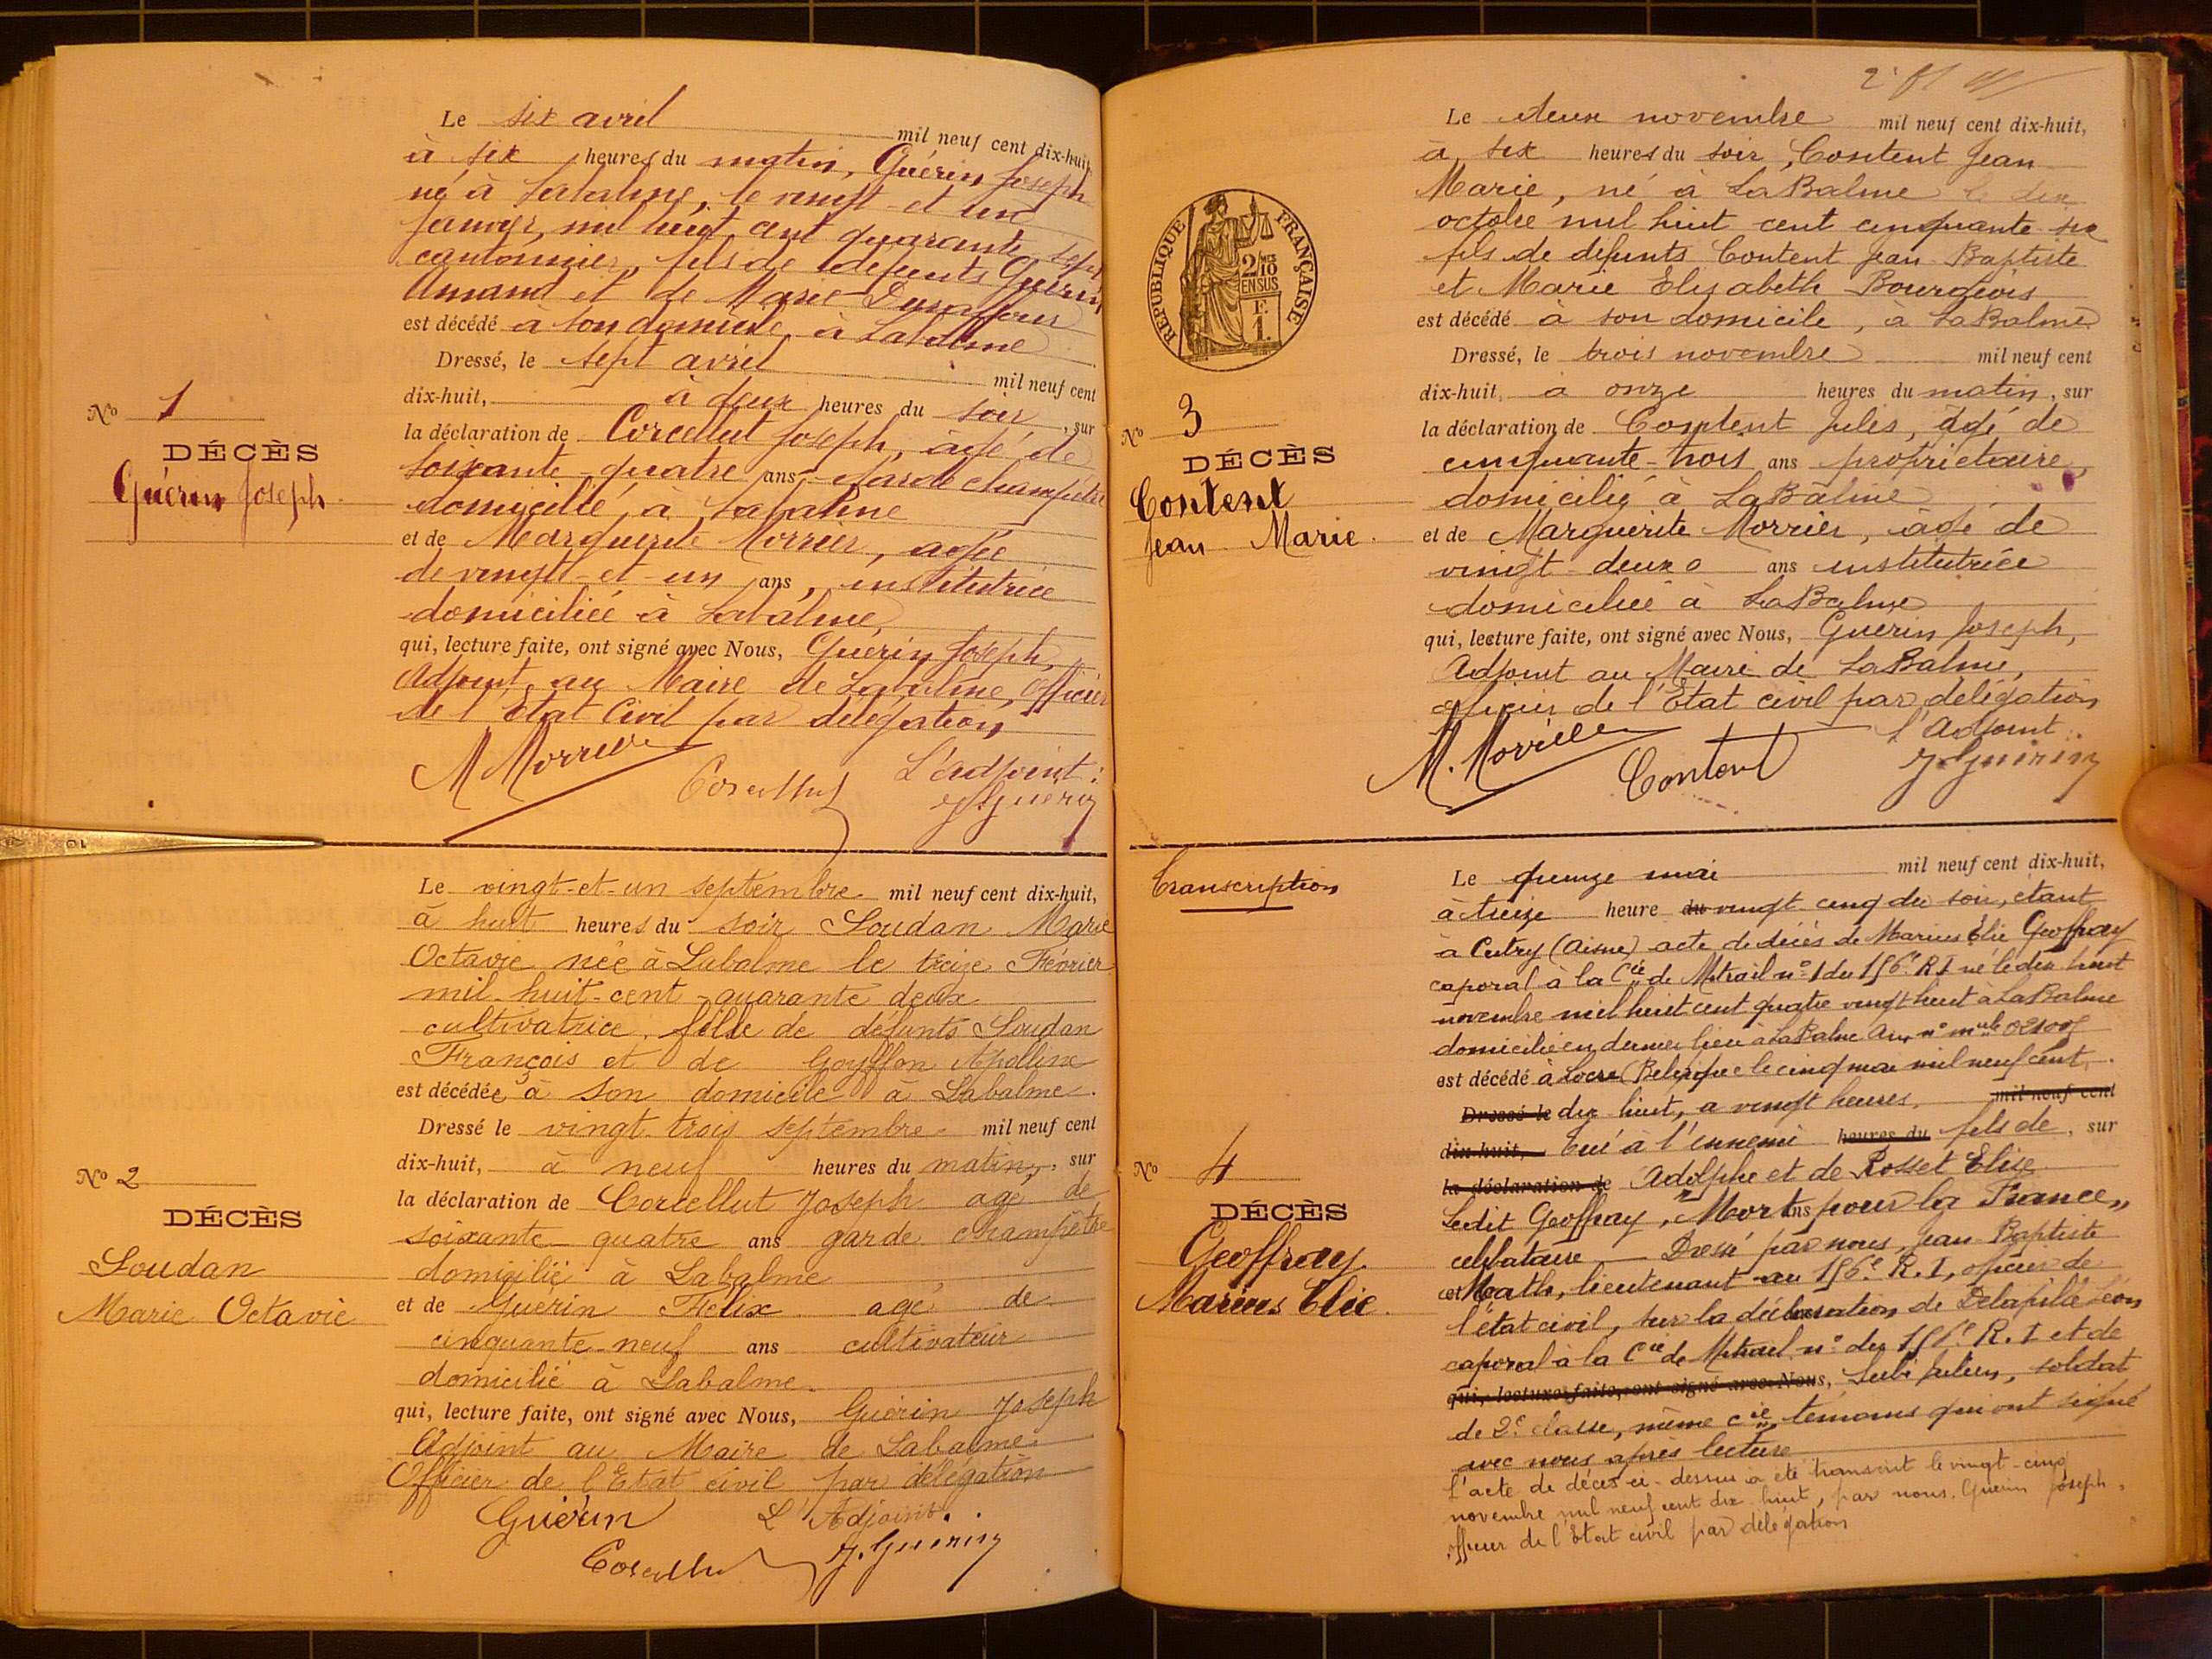 Le six avril mil neuf cent dix-huit
à six heures du matin, Guérin Joseph
né à Labalme, le vingt-et-un
janvier, mil huit cent quarante sept
cantonnier, fils de défunts Guérin
Amand et de Marie Dunaffour
est décédé à son domicile, à Labalme
Dressé, le sept avril mil neuf cent
dix-huit, à deux heures du soir, sur
la déclaration de Corcellut Joseph, âgé de
soixante-quatre ans garde champêtre
domicilié à Labalme
et de Marguerite Morrier, agée
de vingt-et-un ans, institutrice
domiciliée à Labalme,
qui, lecture faite, ont signé avec Nous, Guérin Joseph,
Adjoint au Maire de Labalme, Officier
de l'Etat Civil par délégation
M Morrier
Corcellut
L'adjoint:
J Guérin
No 1
DÉCÈS
Guérin Joseph
Le vingt-et-un septembre mil neuf cent dix-huit,
à huit heures du soir Soudan Marie
Octavie née à Labalme le treize Février
mil-huit-cent-quarante deux
cultivatrice, fille de défunts Soudan
François et de Goyffon Apolline
est décédée à son domicile à Labalme.
Dressé le vingt-trois septembre mil neuf cent
dix-huit, à neuf heures du matin, sur
la déclaration de Corcellut Joseph agé de
soixante quatre ans garde champêtre
domicilié à Labalme
et de Guérin Félix agé de
cinquante-neuf ans cultivateur
domicilié à Labalme.
qui, lecture faite, ont signé avec Nous, Guérin Joseph
Adjoint au Maire de Labalme
Officier de l'Etat civil par délégation
Guérin
L'Adjoint.
Corcellut
J. Guérin
No 2
DÉCÈS
Soudan
Marie Octavie
Le deux novembre mil neuf cent dix-huit,
à six heures du soir, Content Jean
Marie, né à LaBalme le dix
octobre mil huit cent cinquante-six
fils de défunts Content Jean-Baptiste
et Marie Elisabeth Bourgeois
est décédé à son domicile, à LaBalme
Dressé, le trois novembre mil neuf cent
dix-huit, à onze heures du matin, sur
la déclaration de Content Jules, âgé de
cinquante-trois ans propriétaire,
domicilié à LaBalme
et de Marguerite Morrier, âgé de
vingt-deux ans institutrice
domiciliée à LaBalme
qui, lecture faite, ont signé avec Nous, Guérin Joseph,
Adjoint au Maire de LaBalme,
officier de l'Etat civil par délégation
M. Morrier
Content
l'Adjoint
J Guérin
REPUBLIQUE FRANÇAISE
2/10
EN SUS
F.
1.
No 3
DÉCÈS
Content
Jean Marie
Transcription
Le quinze mai mil neuf cent dix-huit,
à treize heure du vingt cinq du soir, étant
à Cutry (Aisne) acte de décès de Marius Elie Geoffray
caporal à la Cie de Mitrail no 1 du 156e R.I né le dix huit
novembre mil huit cent quatre vingt huit à LaBalme
domicilié en dernier lieu à LaBalme Ain
est décédé à Locre (Belgique le cinq mai mil neuf cent
Dressé le dix-huit, a vingt heures. mil neuf cent
dix-huit, tué à l'ennemi heures du fils de, sur
la déclaration de Adolphe et de Rosset Elise
Ledit Geoffray, "Mort ans pour la France"
célibataire Dressé par nous, Jean-Baptiste
et Math, lieutenant au 156e R.I, officier de
l'état civil, sur la déclaration de Léon
caporal à la Cie de Mitrail. no du 156e R.I et de
qui, lecture faite, ont signé avec Nous, Julien, soldat
de 2e classe, même cie, témoins qui ont signé
avec nous après lecture
l'acte de décès ci-dessus a été transcrit le vingt-cinq
novembre mil neuf cent dix-huit, par nous, Guérin Joseph,
officier de l'Etat civil par délégation
No 4
DÉCÈS
Geoffray
Marius Elie